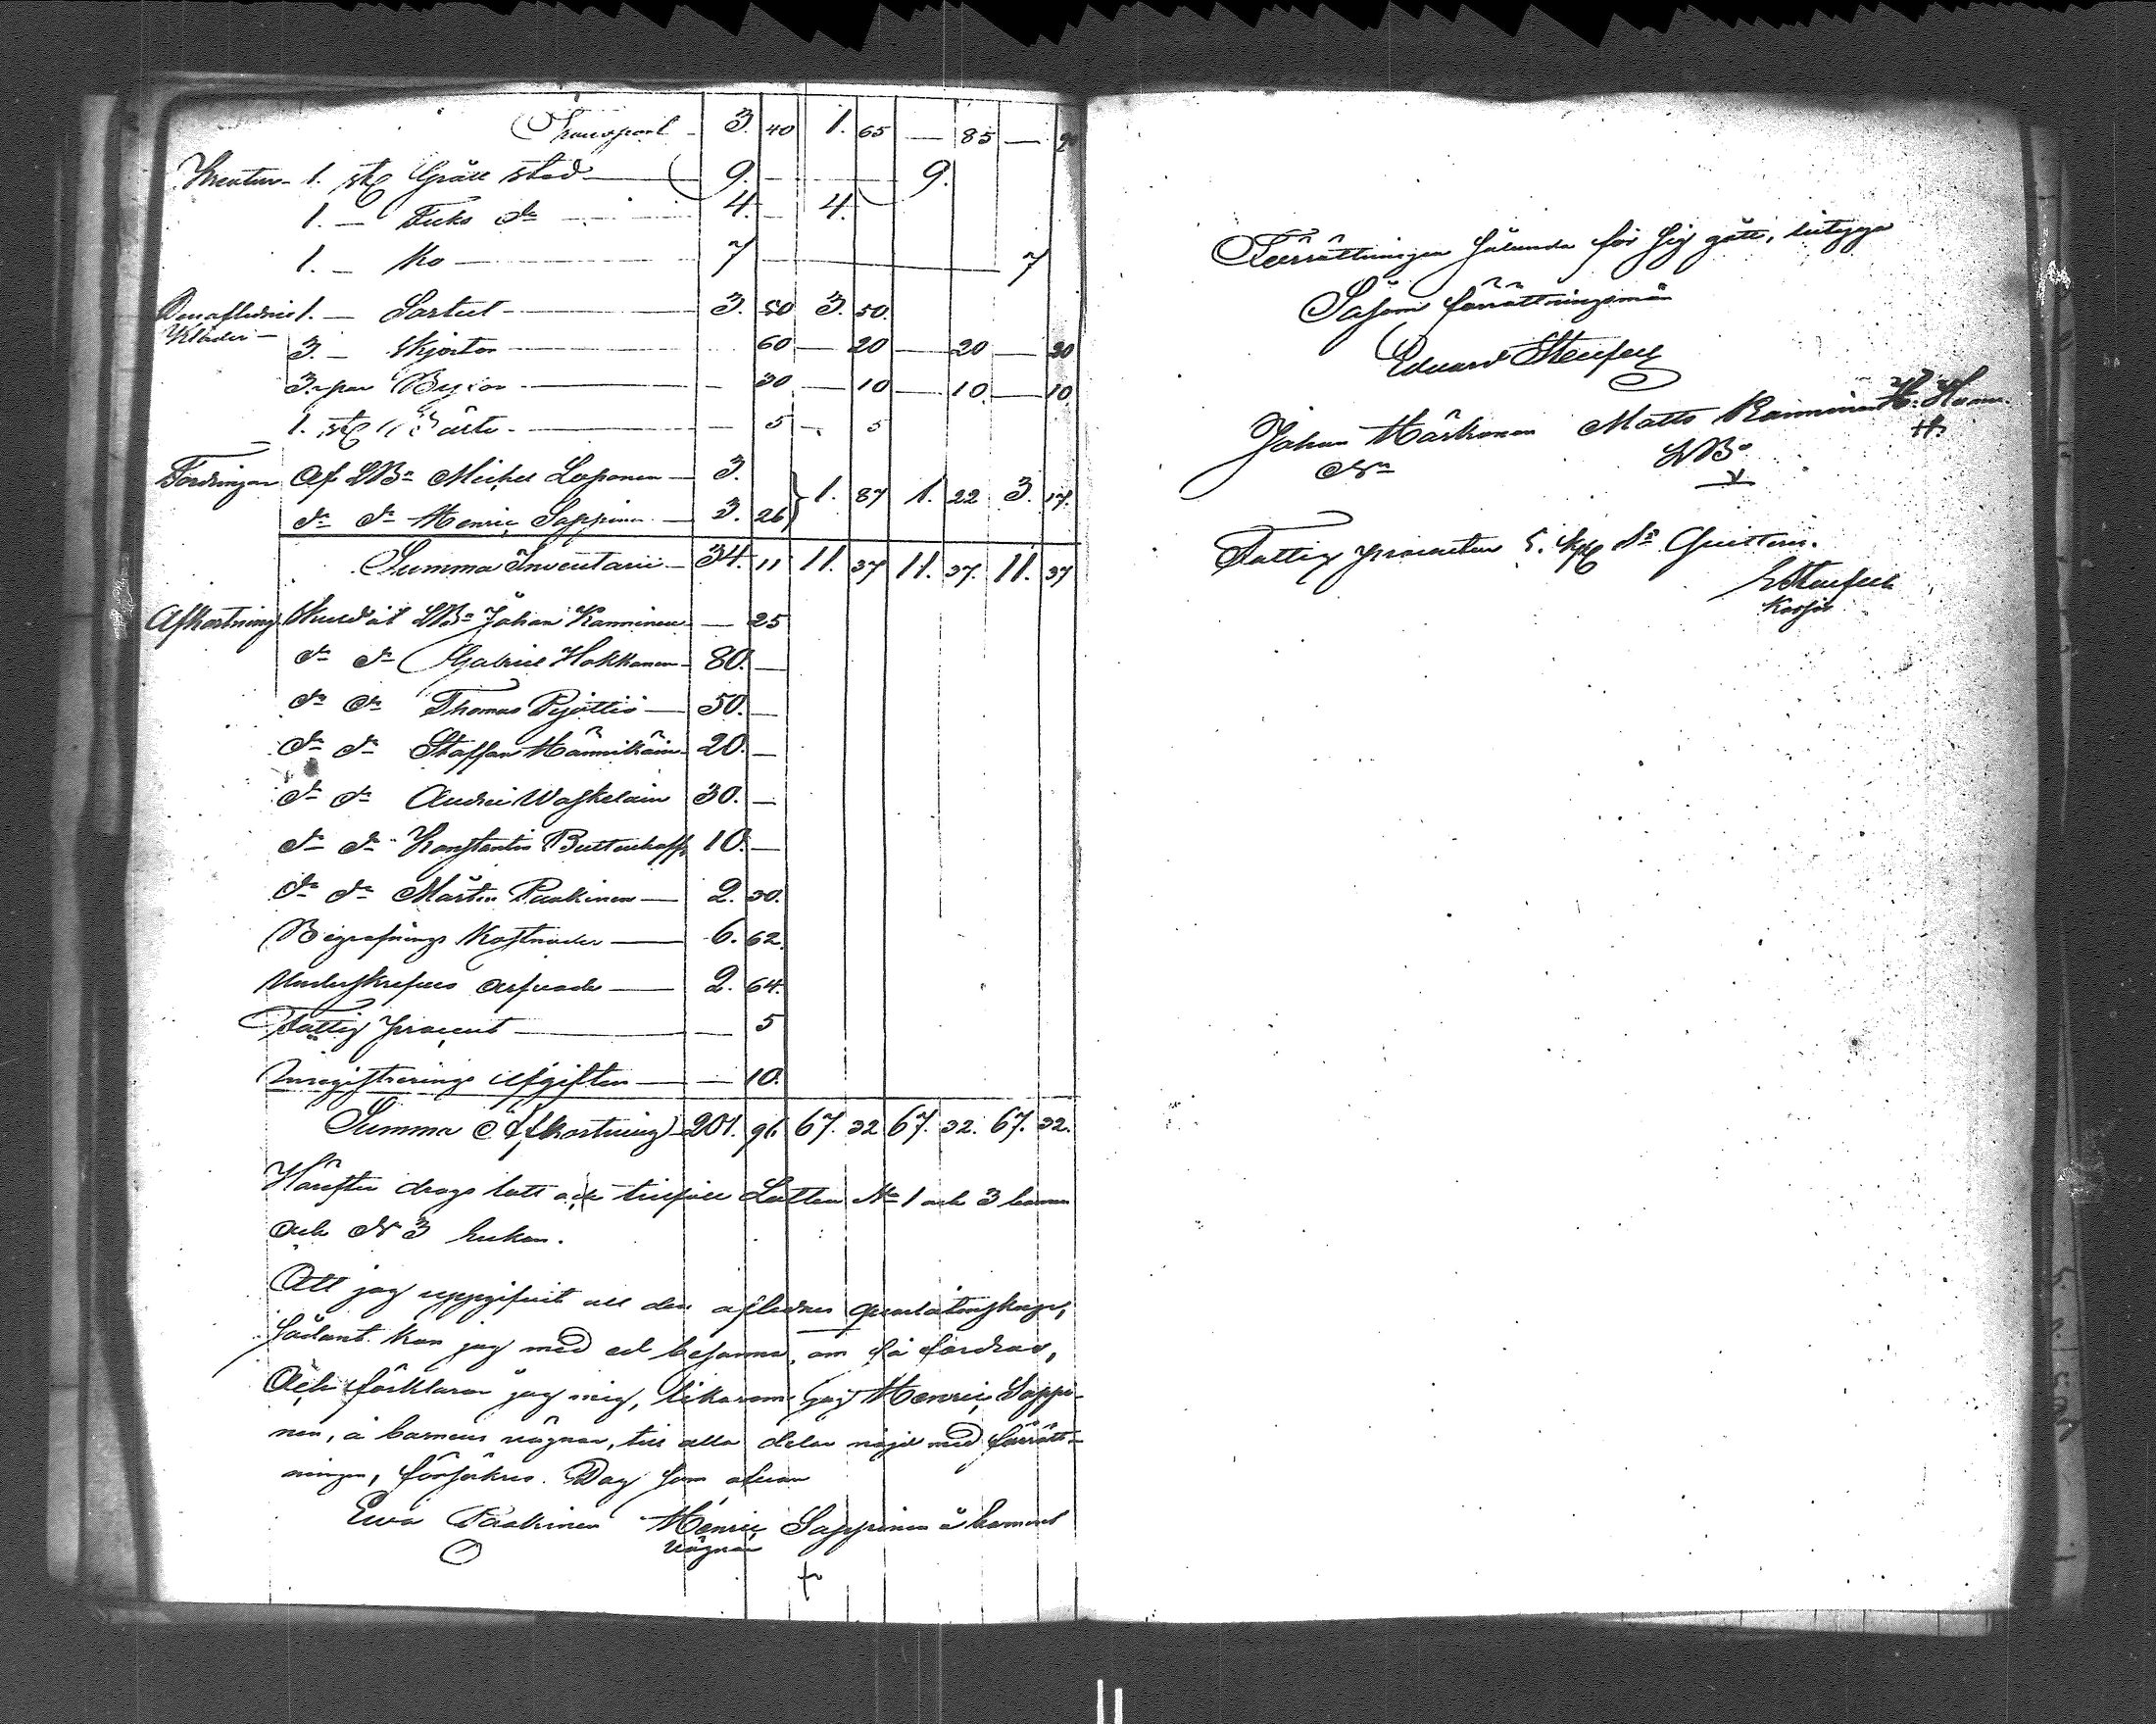 Transport - 3. 40 1. 65 — 85 — 90
Kreatur - 1. st Grått stod — 9. 9.
1. — Fuks do — 4. 4.
1. — Ko — 7 7
Den aflidnes 1. — Sartut — 3. 50 3. 50.
Kläder — 3. — Skjortor — 60 — 20 — 20 — 20
3. par Byxor — 30 — 10 — 10. — 10.
1. st — 5 — 5
Fordringar Af LBn Michel Loponen — 3.
do do Henric Sappinen — 3. 26 1. 87 1. 22 3. 17.
Summa Inventarii — 34. 11 11. 37 11. 37. 11. 37
Afkortning Skuld åt LBn Johan Ranninen — 25
do do Gabriel Hokkanen — 80. —
do do Thomas Pyöttiö — 50. —
do do Staffan Hännikäin — 20. —
do do Andrei Waskelain 30. —
do do Konstantin Buttenhoff 10. —
do do Mårten Paakinen — 2. 30.
Begrafnings Kostnader — 6. 62.
Underskrifves arfvode — 2. 64.
Fattig procent — 5
Inregistrerings afgiften — 10.
Summa Afkortning 201. 96 67. 32 67. 32. 67. 32.
Härefter drogs lott och tillföll Lotten No 1 och 3 barnen
och N 3 Enkan.
Att jag uppgifvit all den aflidnes qvarlåtenskap,
sådant kan jag med ed besanna, om så fordras,
Och förklarar jag mig, likasom jag Henric Sappi-
nen, å barnens vägnar, till alla delar nöjd med förrätt-
ningen, försäkras. Dag som ofvan
Ewa Paakinen Henric Sappinen å barnens
vägnar
Förrättningen sålunda för sig gått, betyga
Såsom förrättningsmän
Eduard
Johan Härkonen Matts Ranninen H.
Nn LBn H.
Fattig procenten 5. kop Sr Quitteras.
Kassör